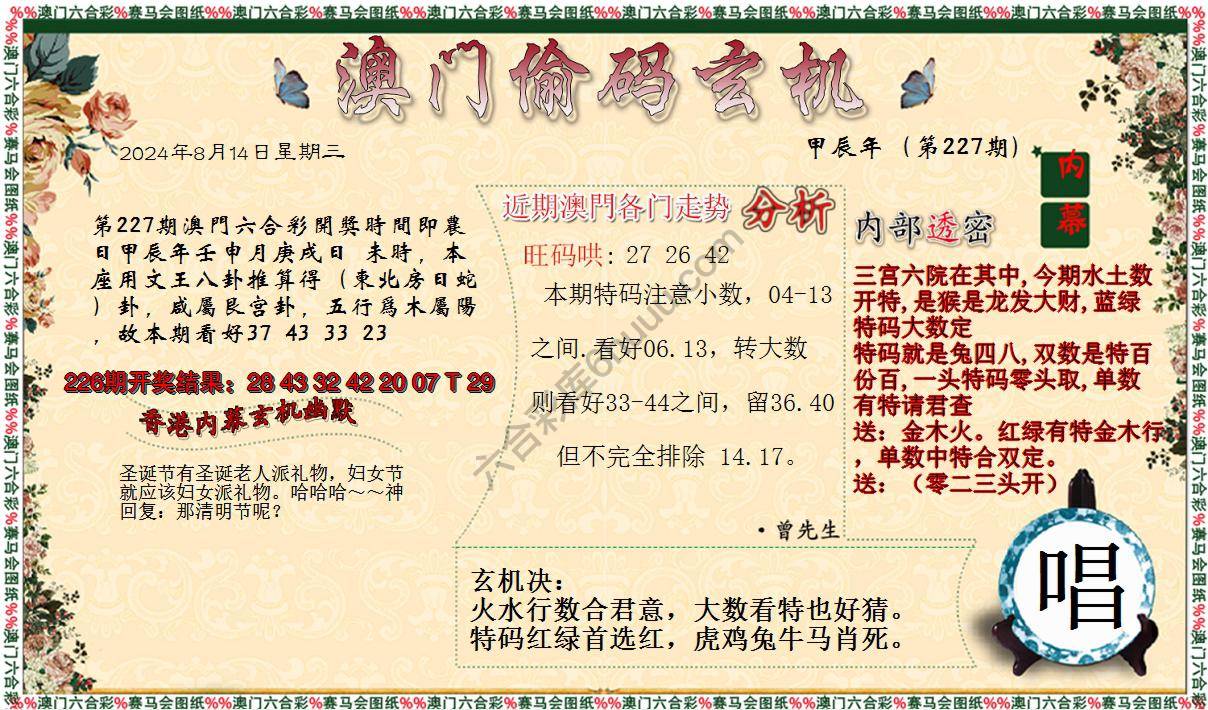 %%澳门六合彩%赛马会图纸%%澳门六合彩%赛马会图纸%%澳门六合彩%赛马会图纸%%澳门六合彩%赛马会图纸%%澳门六合彩%赛马会图纸%%澳门六合彩%赛马会图纸%%澳门六合彩%赛马会图纸%%
澳门偷码玄机
2024年8月14日星期三
甲辰年（第227期）
内幕
第227期澳門六合彩開獎時間即農
日甲辰年壬申月庚戌日 未時，本
座用文王八卦推算得（東北房日蛇
）卦，咸屬艮宫卦，五行爲木屬陽
，故本期看好37 43 33 23
226期开奖结果：28 43 32 42 20 07 T 29
香港内幕玄机幽默
圣诞节有圣诞老人派礼物，妇女节
就应该妇女派礼物。哈哈哈～～神
回复：那清明节呢？
近期澳門各门走势 分析
旺码哄: 27 26 42
本期特码注意小数，04-13
之间.看好06.13，转大数
则看好33-44之间，留36.40
但不完全排除 14.17。
·曾先生
内部透密
三宫六院在其中,今期水土数
开特,是猴是龙发大财,蓝绿
特码大数定
特码就是兔四八,双数是特百
份百,一头特码零头取,单数
有特请君查
送：金木火。红绿有特金木行
，单数中特合双定。
送：（零二三头开）
玄机决：
火水行数合君意，大数看特也好猜。
特码红绿首选红，虎鸡兔牛马肖死。
唱
%%澳门六合彩%赛马会图纸%%澳门六合彩%赛马会图纸%%澳门六合彩%赛马会图纸%%澳门六合彩%赛马会图纸%%澳门六合彩%赛马会图纸%%澳门六合彩%赛马会图纸%%澳门六合彩%赛马会图纸%%